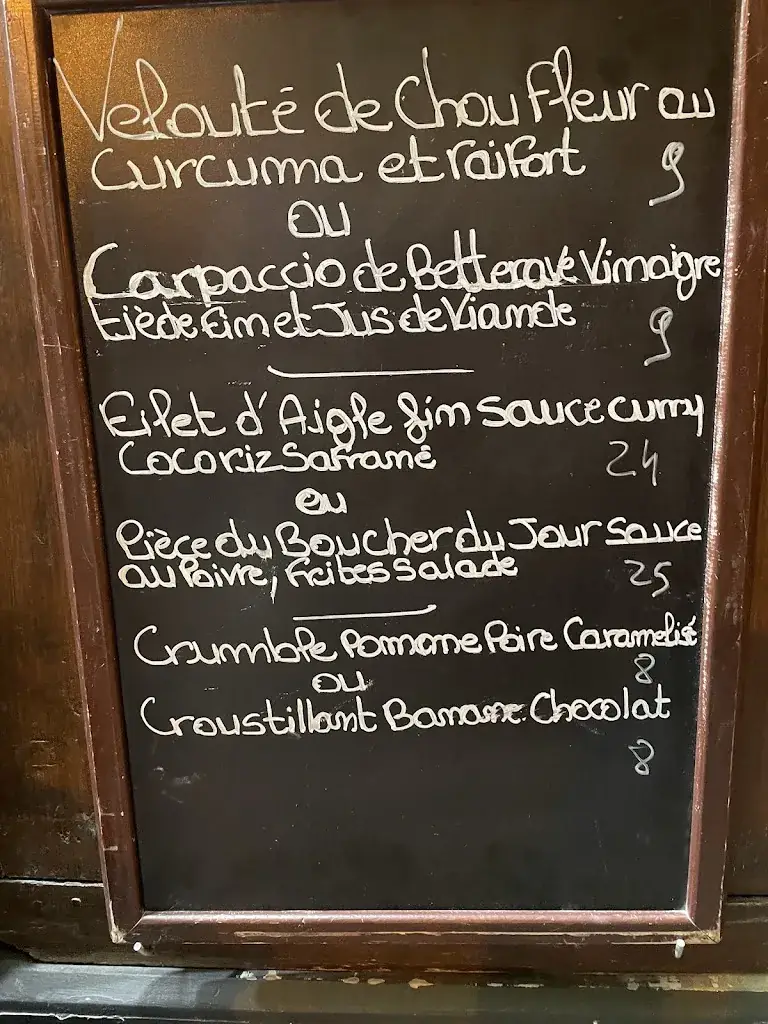 Velouté de Chou Fleur au
Curcuma et raifort 9
ou
Carpaccio de Betterave Vinaigre
tiède Fin et Jus de Viande 9
Filet d'Aigle fin sauce curry
Coco riz Safrané 24
ou
Pièce du Boucher du Jour Sauce
au Poivre, Frites Salade 25
Crumble Pomme Poire Caramelisé
8
ou
Croustillant Banane Chocolat
8